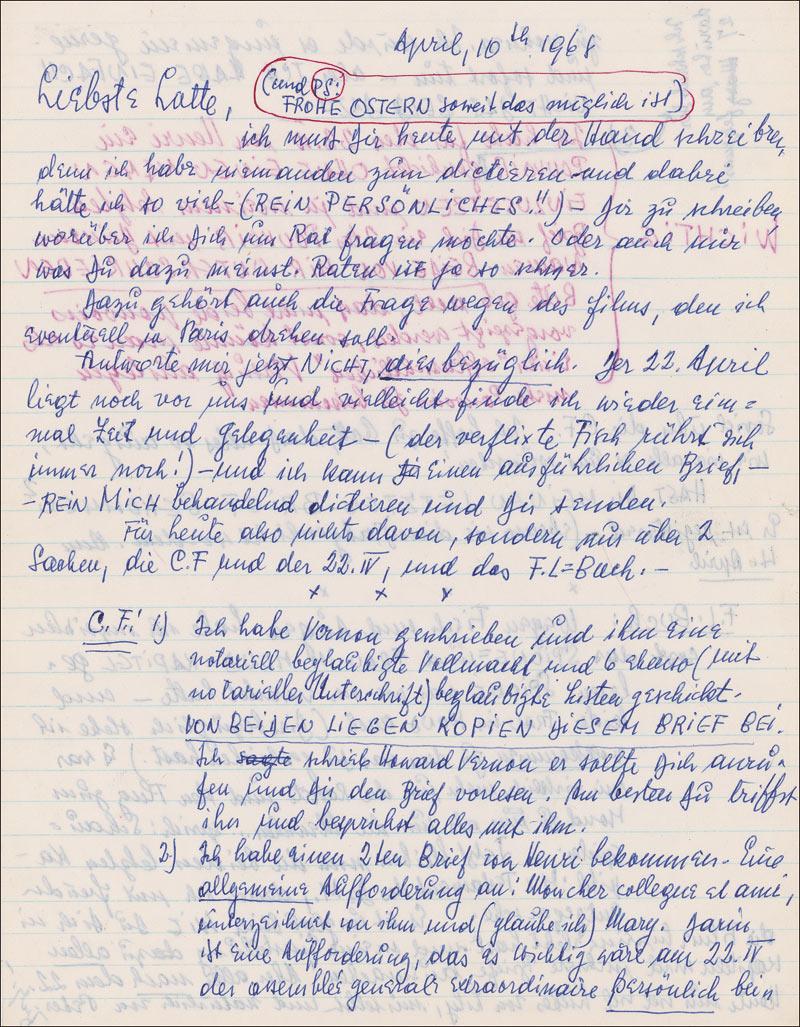 April, 10th 1968
(und PS:
Liebste Lotte, FROHE OSTERN soweit das möglich ist)
ich muß Dir heute mit der Hand schreiben,
denn ich habe niemanden zum dictieren - und dabei
hätte ich so viel - (REIN PERSÖNLICHES!!) - Dir zu schreiben
worüber ich Dich um Rat fragen möchte. Oder auch nur
was Du dazu meinst. Raten ist ja so schwer.
Dazu gehört auch die Frage wegen des Films, den ich
eventuell in Paris drehen soll.
Antworte mir jetzt NICHT, diesbezüglich. Der 22. April
liegt noch vor uns und vielleicht finde ich wieder ein=
mal Zeit und Gelegenheit - (der verflixte Fisch rührt sich
immer noch!) - und ich kann einen ausführlichen Brief, -
- REIN MICH behandelnd dictieren und Dir senden.
Für heute also nichts davon, sondern nur über 2
Sachen, die C.F und der 22.IV, und das F.L=Buch. -
x x x
C.F.: 1) Ich habe Vernon geschrieben und ihm eine
notariell beglaubigte Vollmacht und 6 ebenso (mit
notarieller Unterschrift) beglaubigte Listen geschickt.
VON BEIDEN LIEGEN KOPIEN DIESEM BRIEF BEI.
Ich sagte schrieb Howard Vernon er sollte Dich anru=
fen und Dir den Brief vorlesen. Am besten Du triffst
ihn und besprichst alles mit ihm.
2) Ich habe einen 2ten Brief von Henri bekommen. Eine
allgemeine Aufforderung an: Moncher collegue et ami,
unterzeichnet von ihm und (glaube ich) Mary. Darin
ist eine Aufforderung, das es wichtig wäre am 22.IV
der assemblée generale extraordinaire persönlich bei=
WICHTIG